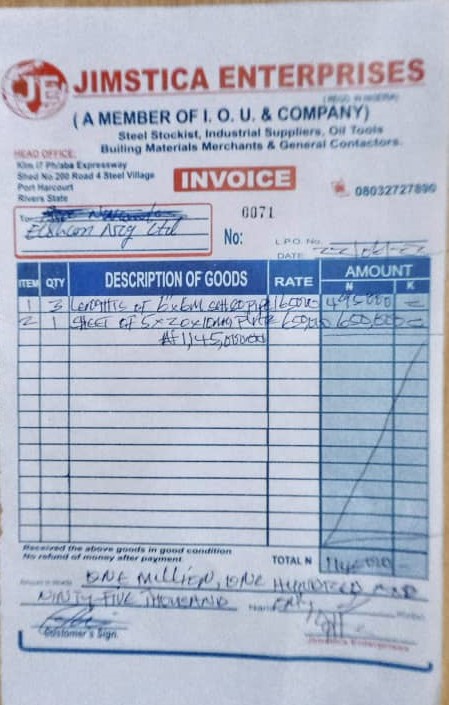 JE JIMSTICA ENTERPRISES
(REGD. IN NIGERIA)
( A MEMBER OF I. O. U. & COMPANY)
Steel Stockist, Industrial Suppliers, Oil Tools
Builing Materials Merchants & General Contactors.
HEAD OFFICE:
Shed No.200 Road 4 Steel Village
Port Harcourt
Rivers State
INVOICE
08032727890
To
Ltd
0071
No:
L.P.O. No.
DATE
ITEM QTY DESCRIPTION OF GOODS RATE AMOUNT
N K
1 3 LENGTHS OF 165000 495,000
2 1 SHEET OF 5X20X10MM PLATE 650,000 650,000
Received the above goods in good condition
No refund of money after payment
TOTAL N
Amount in Words ONE MILLION, ONE HUNDRED AND
NINTY FIVE THOUSAND Naira ONLY
Customer's Sign.
Jimstica Enterprises